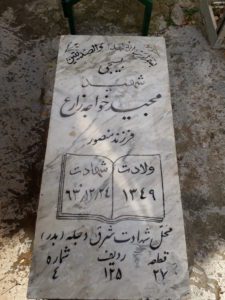 شهید
مجید خواجه زارع
فرزند منصور
ولادت شهادت
۱۳۴۹ ۶۳/۱۲/۲۴
محل شهادت شرق دجله (بدر)
قطعه ردیف شماره
۲۷ ۱۲۵ ۴